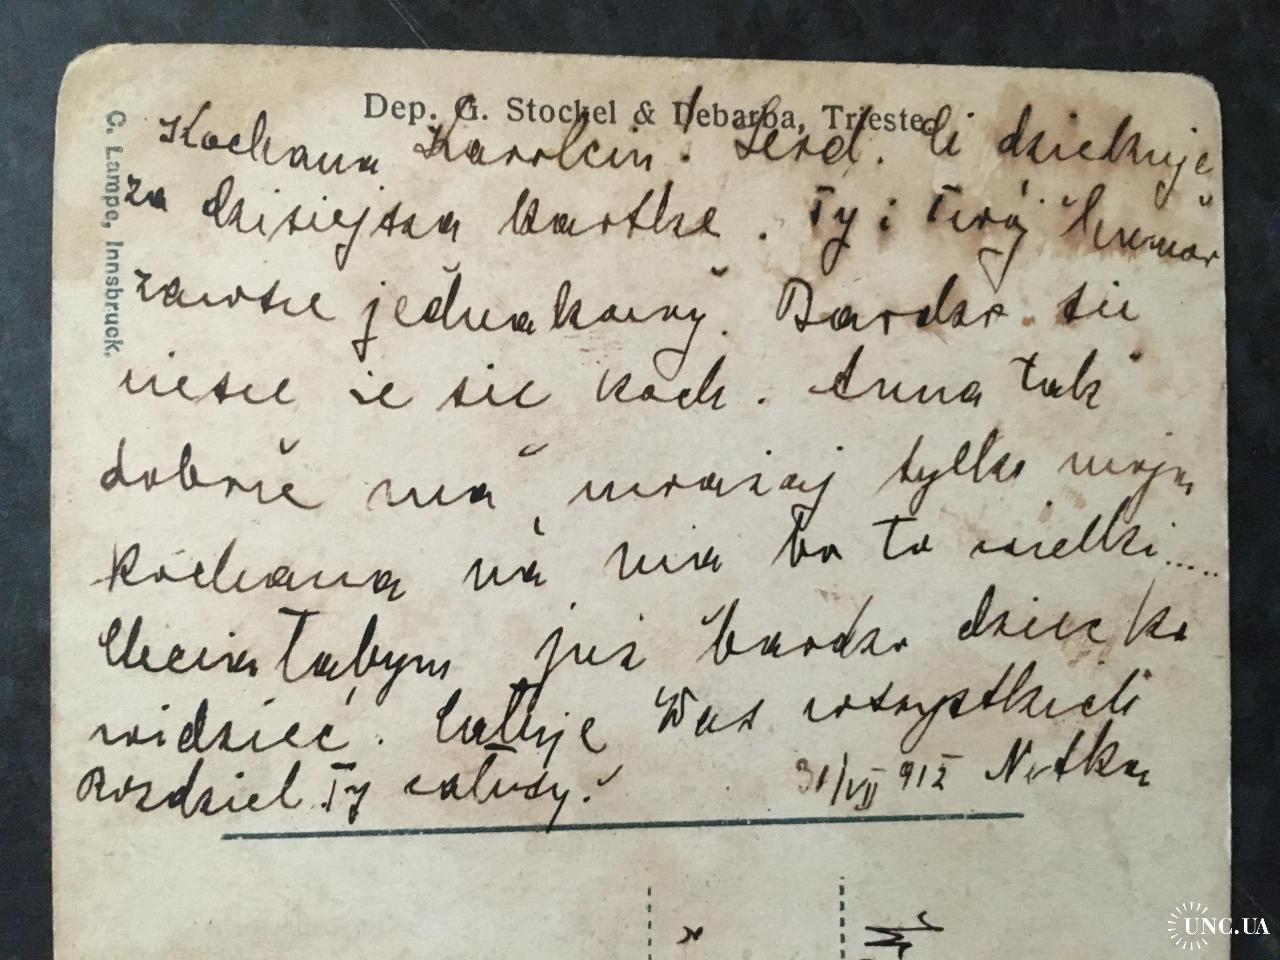 Dep. G. Stockel & Debarba, Trieste.
C. Lampe, Innsbruck.
Kochana Karolciu. Serd. Ci dziekuje
za dzisiejsza kartke. Ty i Twój humor
zawsze jednakowy. Bardzo sie
ciesze ze sie koch. Anna tak
dobrze ma, uwazaj tylko moja
kochana na nia bo to wielki.....
Chciałabym już bardzo dziecko
widzieć. Całuje Was wszystkich
Rozdziel Ty całusy.
31/VII 912 Netka
UNC.UA